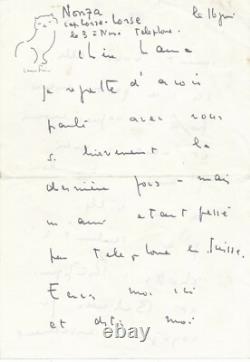 Nonza
Cap Corse - Corse
le 3 à Nonza Telephone.
le 16 juin
je regrette d'avoir
parlé avec vous
si brievement la
dernière fois - mais
un ami etant pressé
par telephone en Suisse.
moi ici
et dites moi